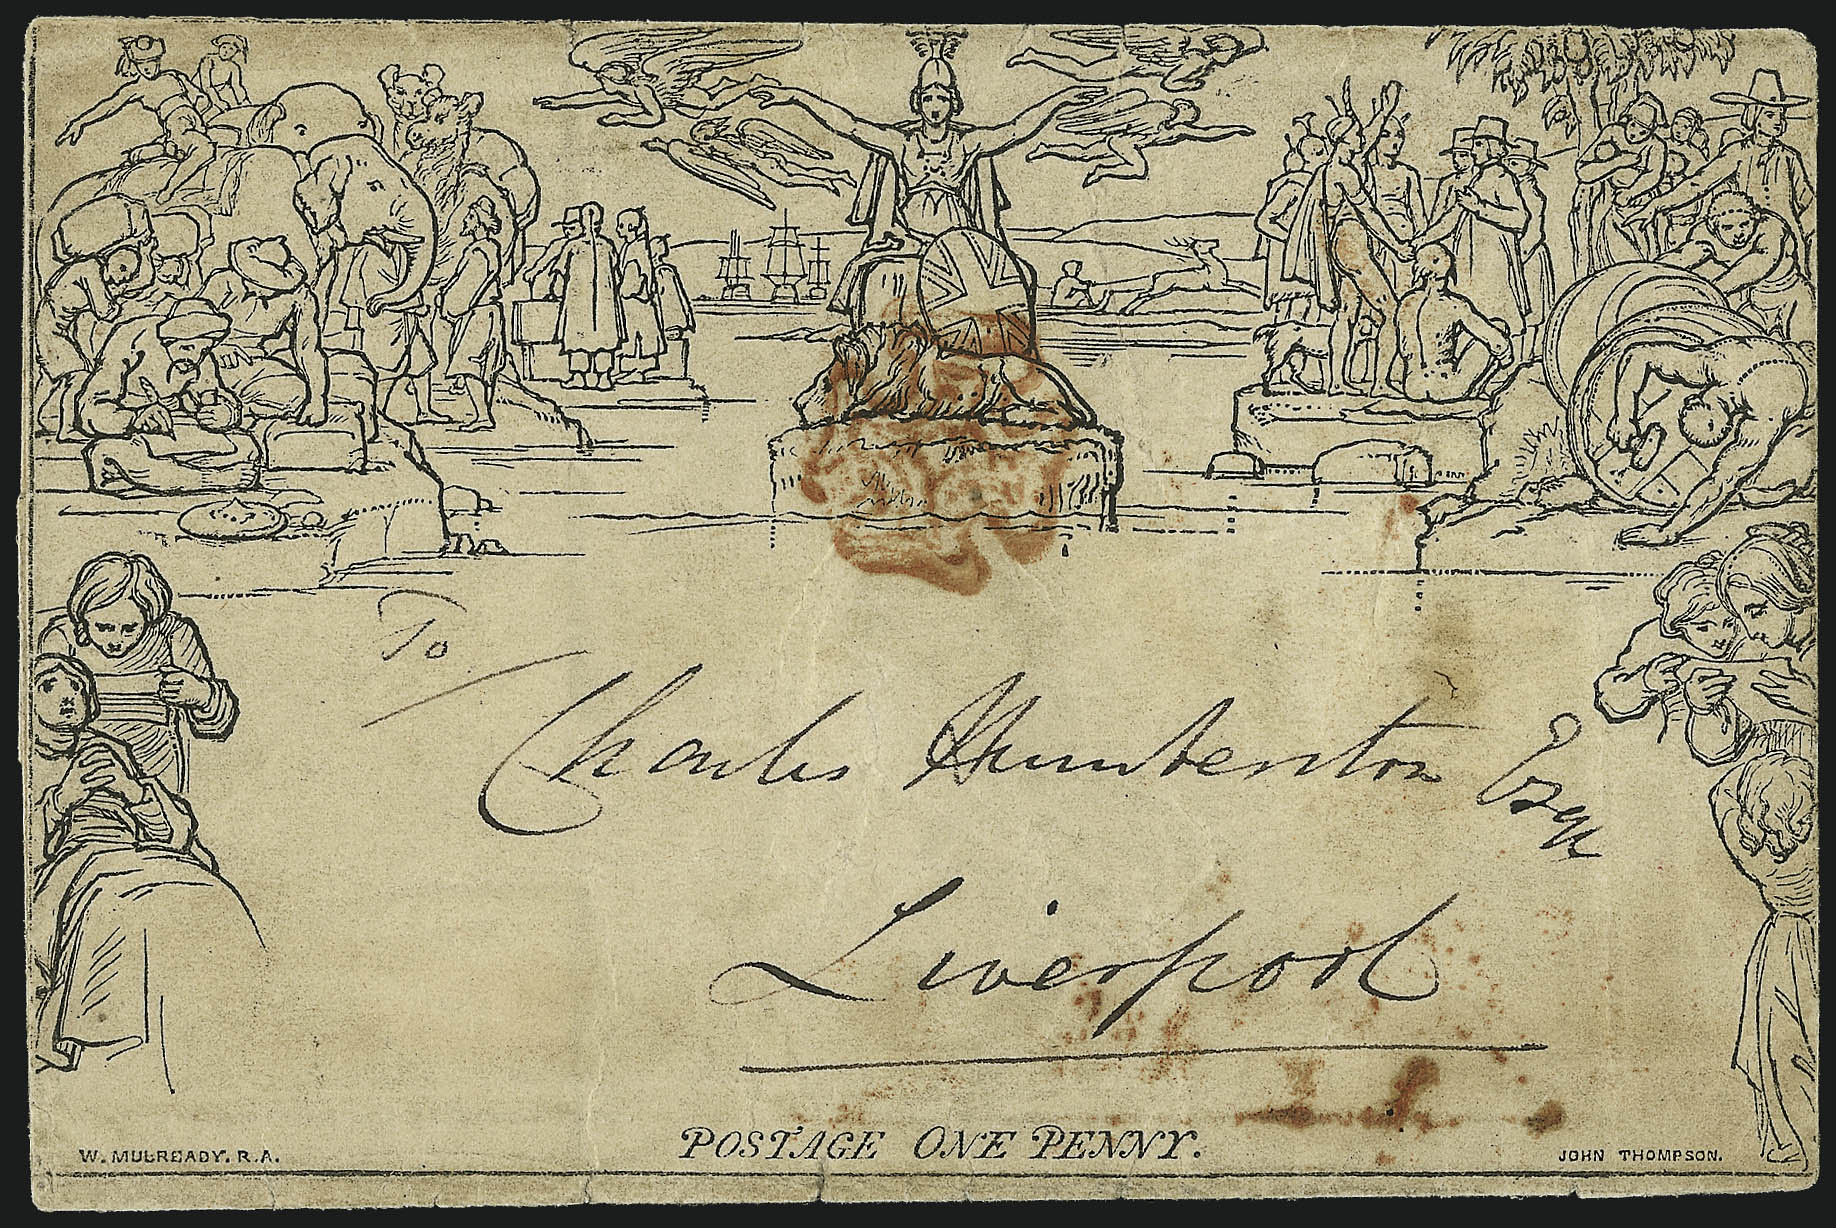 To
Charles Humberston Esqr
Liverpool
POSTAGE ONE PENNY.
W. MULREADY. R.A.
JOHN THOMPSON.